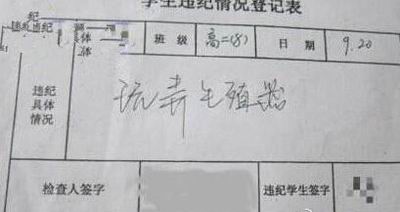 学生违纪情况登记表
班 级 高二(8) 日 期 9.20
违纪
具体
情况
玩弄生殖器
检查人签字 违纪学生签字